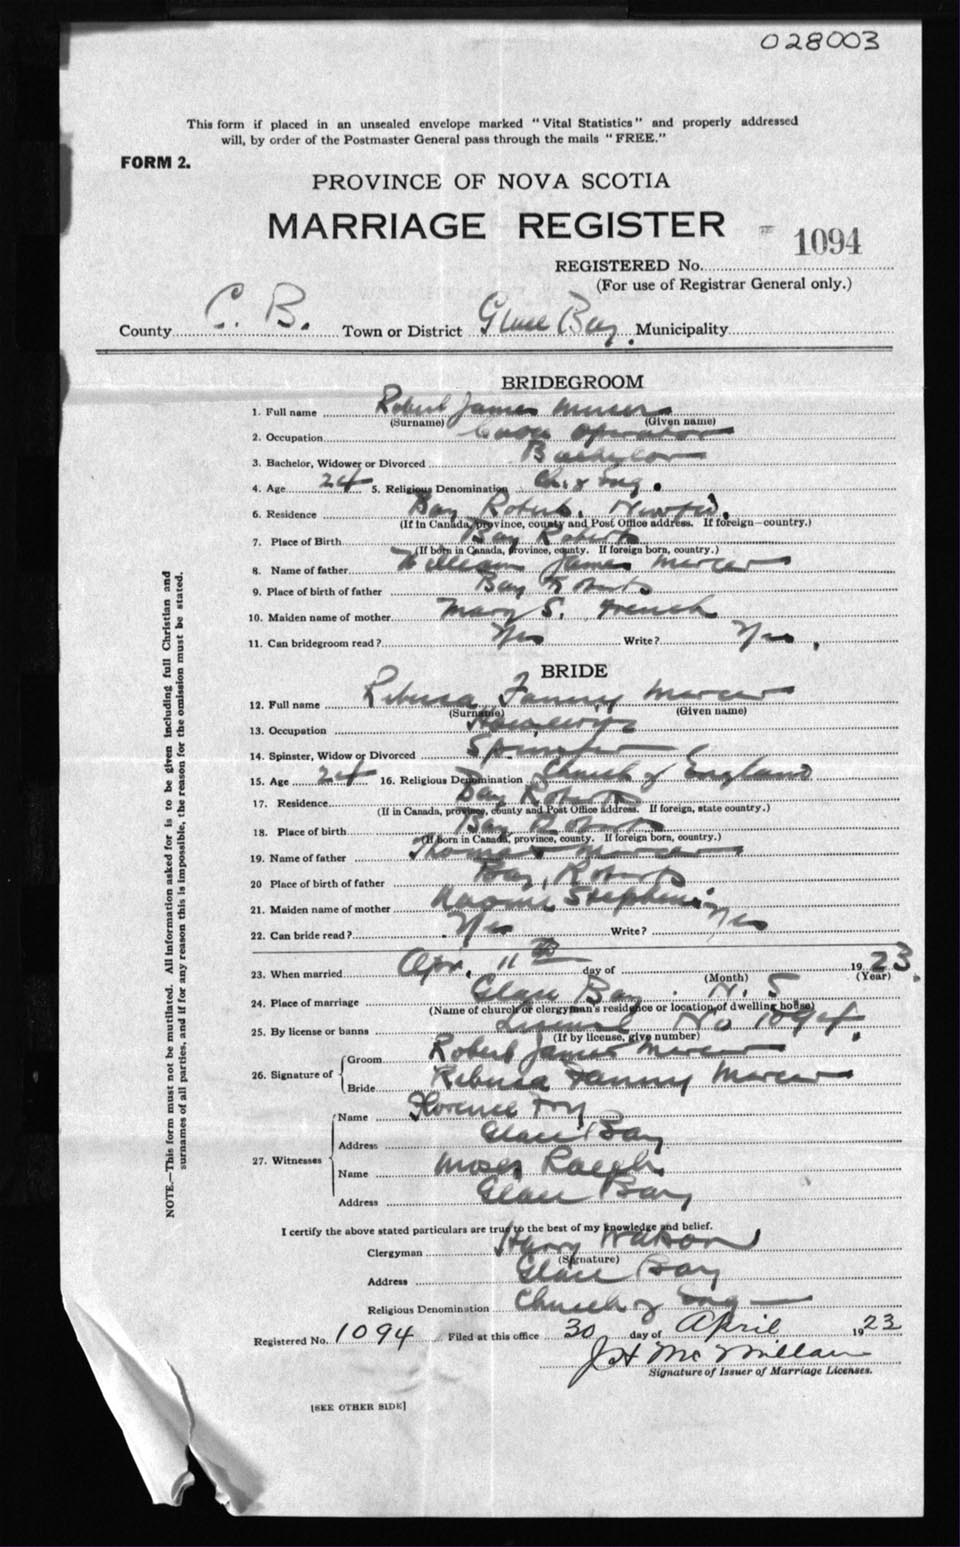 028003
This form if placed in an unsealed envelope marked "Vital Statistics" and properly addressed
will, by order of the Postmaster General pass through the mails "FREE."
FORM 2.
PROVINCE OF NOVA SCOTIA
MARRIAGE REGISTER
1094
REGISTERED No.
(For use of Registrar General only.)
County C. B. Town or District Glace Bay. Municipality
BRIDEGROOM
1. Full name Robert James Mercer
(Surname) (Given name)
2. Occupation Operator
3. Bachelor, Widower or Divorced Bachelor
4. Age 24 5. Religious Denomination Ch. of Eng.
6. Residence Bay Roberts. Newfld.
(If in Canada, province, county and Post Office address. If foreign—country.)
7. Place of Birth Bay Roberts
(If born in Canada, province, county. If foreign born, country.)
8. Name of father William James Mercer
9. Place of birth of father Bay Roberts
10. Maiden name of mother Mary S. French
11. Can bridegroom read? Yes Write? Yes.
BRIDE
12. Full name Fanny Mercer
(Surname) (Given name)
13. Occupation
14. Spinster, Widow or Divorced Spinster
15. Age 24 16. Religious Denomination Church of England
17. Residence Bay Roberts
(If in Canada, province, county and Post Office address. If foreign, state country.)
18. Place of birth Bay Roberts
(If born in Canada, province, county. If foreign born, country.)
19. Name of father Thomas Mercer
20 Place of birth of father Bay, Roberts
21. Maiden name of mother Naomi
22. Can bride read? Yes Write? Yes
23. When married Apr. 11th day of 1923.
(Month) (Year)
24. Place of marriage Glace Bay. N. S
(Name of church or clergyman's residence or location of dwelling house)
25. By license or banns License No 1094.
(If by license, give number)
26. Signature of
Groom Robert James Mercer
Bride Fanny Mercer
27. Witnesses
Name Florence
Address Glace Bay
Name Moses Ralph
Address Glace Bay
I certify the above stated particulars are true to the best of my knowledge and belief.
Clergyman Harry Watson
(Signature)
Address Glace Bay
Religious Denomination Church of Eng
Registered No. 1094 Filed at this office 30 day of April 1923
J H McMillan
Signature of Issuer of Marriage Licenses.
[SEE OTHER SIDE]
NOTE.—This form must not be mutilated. All information asked for is to be given including full Christian and
surnames of all parties, and if for any reason this is impossible, the reason for the omission must be stated.